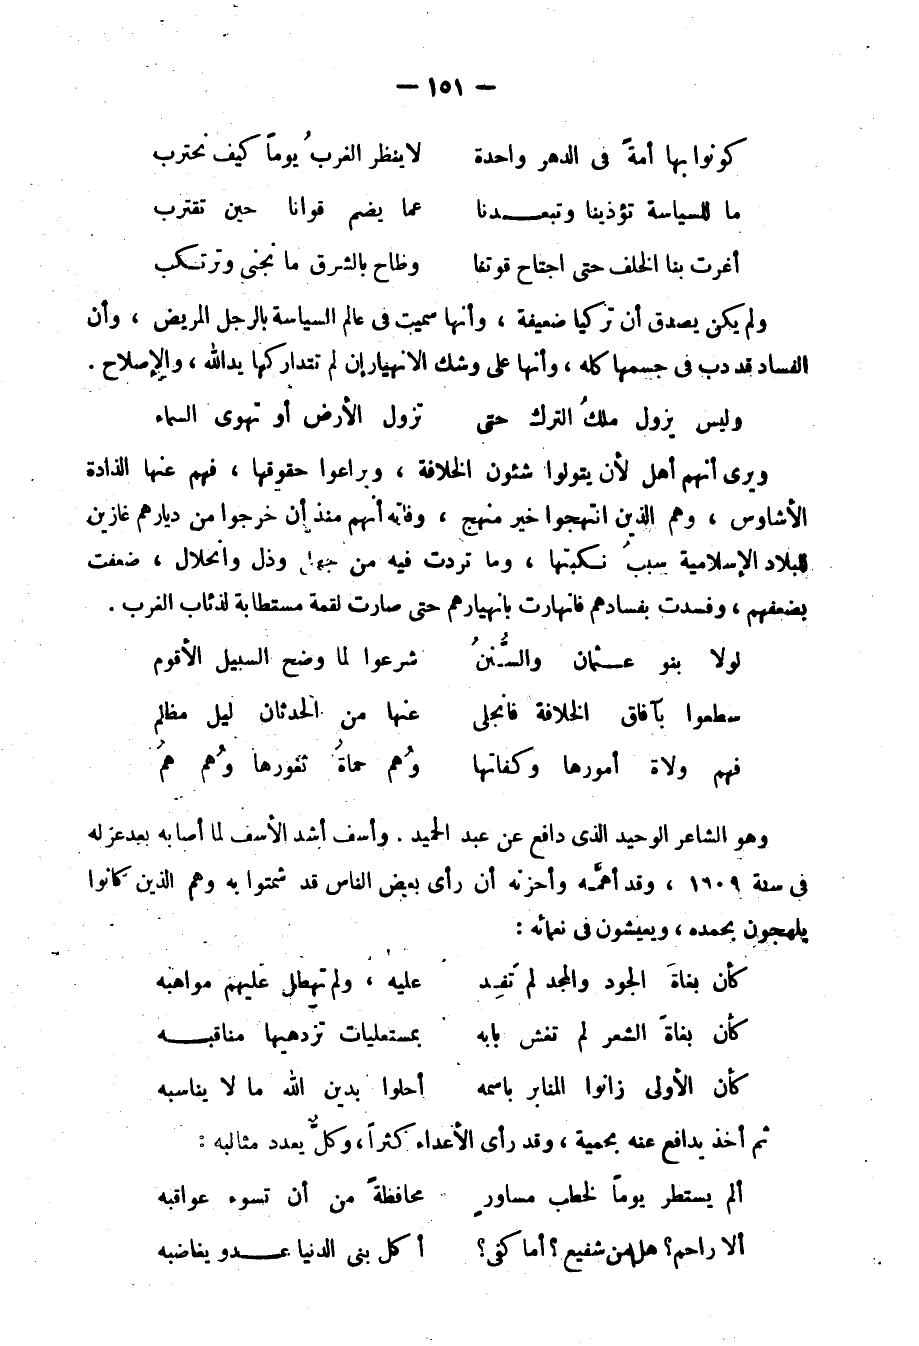 — ١٥١ —
كونوا بها أمةً فى الدهر واحدة لا ينظر الغربُ يوماً كيف نحترب
ما للسياسة تؤذينا وتبعـــدنا عما يضم قوانا حين تقترب
أغرت بنا الخلف حتى اجتاح قوتنا وطاح بالشرق ما نجنى وترتـكب
ولم يكن يصدق أن تركيا ضعيفة ، وأنها سميت فى عالم السياسة بالرجل المريض ، وأن
الفساد قد دب فى جسمها كله ، وأنها على وشك الانهيار إن لم تتداركها يد الله ، والإصلاح .
وليس يزول ملكُ الترك حتى تزول الأرض أو تهوى السماء
ويرى أنهم أهل لأن يتولوا شئون الخلافة ، ويراعوا حقوقها ، فهم عنها الذادة
الأشاوس ، وهم الذين انتهجوا خير منهج ، وفاته أنهم منذ أن خرجوا من ديارهم غازين
للبلاد الإسلامية سببُ نـكبتها ، وما تردت فيه من جهل وذل وانحلال ، ضعفت
بضعفهم ، وفسدت بفسادهم فانهارت بانهيارهم حتى صارت لقمة مستطابة لذئاب الغرب .
لولا بنو عـثمان والسُّننُ شرعوا لما وضح السبيل الأقوم
سطعوا بآفاق الخلافة فانجلى عنها من الحدثان ليل مظلم
فهم ولاة أمورها وكفاتها وُهم حماةُ ثغورها وُهم همُ
وهو الشاعر الوحيد الذى دافع عن عبد الحميد . وأسف أشد الأسف لما أصابه بعد عزله
فى سنة ١٦٠٩ ، وقد أهمَّـه وأحزنه أن رأى بعض الناس قد شمتوا به وهم الذين كانوا
يلهجون بحمده ، ويعيشون فى نعمائه :
كأن بغاةَ الجود والمجد لم تَفـد عليه ، ولم تهطل عليهم مواهبه
كأن بغاةَ الشعر لم تغش بابه بمستعليات تزدهيها مناقبـــه
كأن الأولى زانوا المنابر باسمه أحلوا بدين الله ما لا يناسبه
ثم أخذ يدافع عنه بحمية ، وقد رأى الأعداء كثراً ، وكلٌّ يعدد مثالبه :
ألم يستطر يوماً لخطب مساورٍ محافظةً من أن تسوء عواقبه
ألا راحم؟ هل من شفيع ؟ أما كفى؟ أ كل بنى الدنيا عـــدو يغاضبه